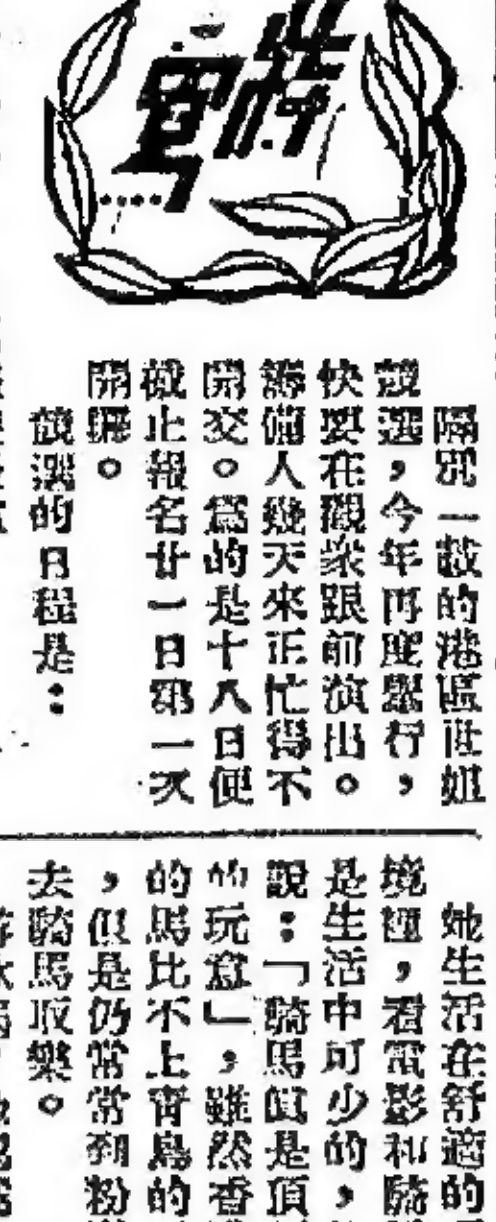 特寫
隔別一載的港區世姐
競選，今年再度舉行，
快要在觀衆跟前演出。
籌備人幾天來正忙得不
開交。爲的是十八日便
截止報名廿一日第一次
開獅。
競選的日程是：
她生活在舒適的
境裡，看電影和騎
是生活中可少的，
說：「騎馬眞是頂
的玩意」，雖然香
的馬比不上青鳥的
，但是仍常常到粉
去騎馬取樂。